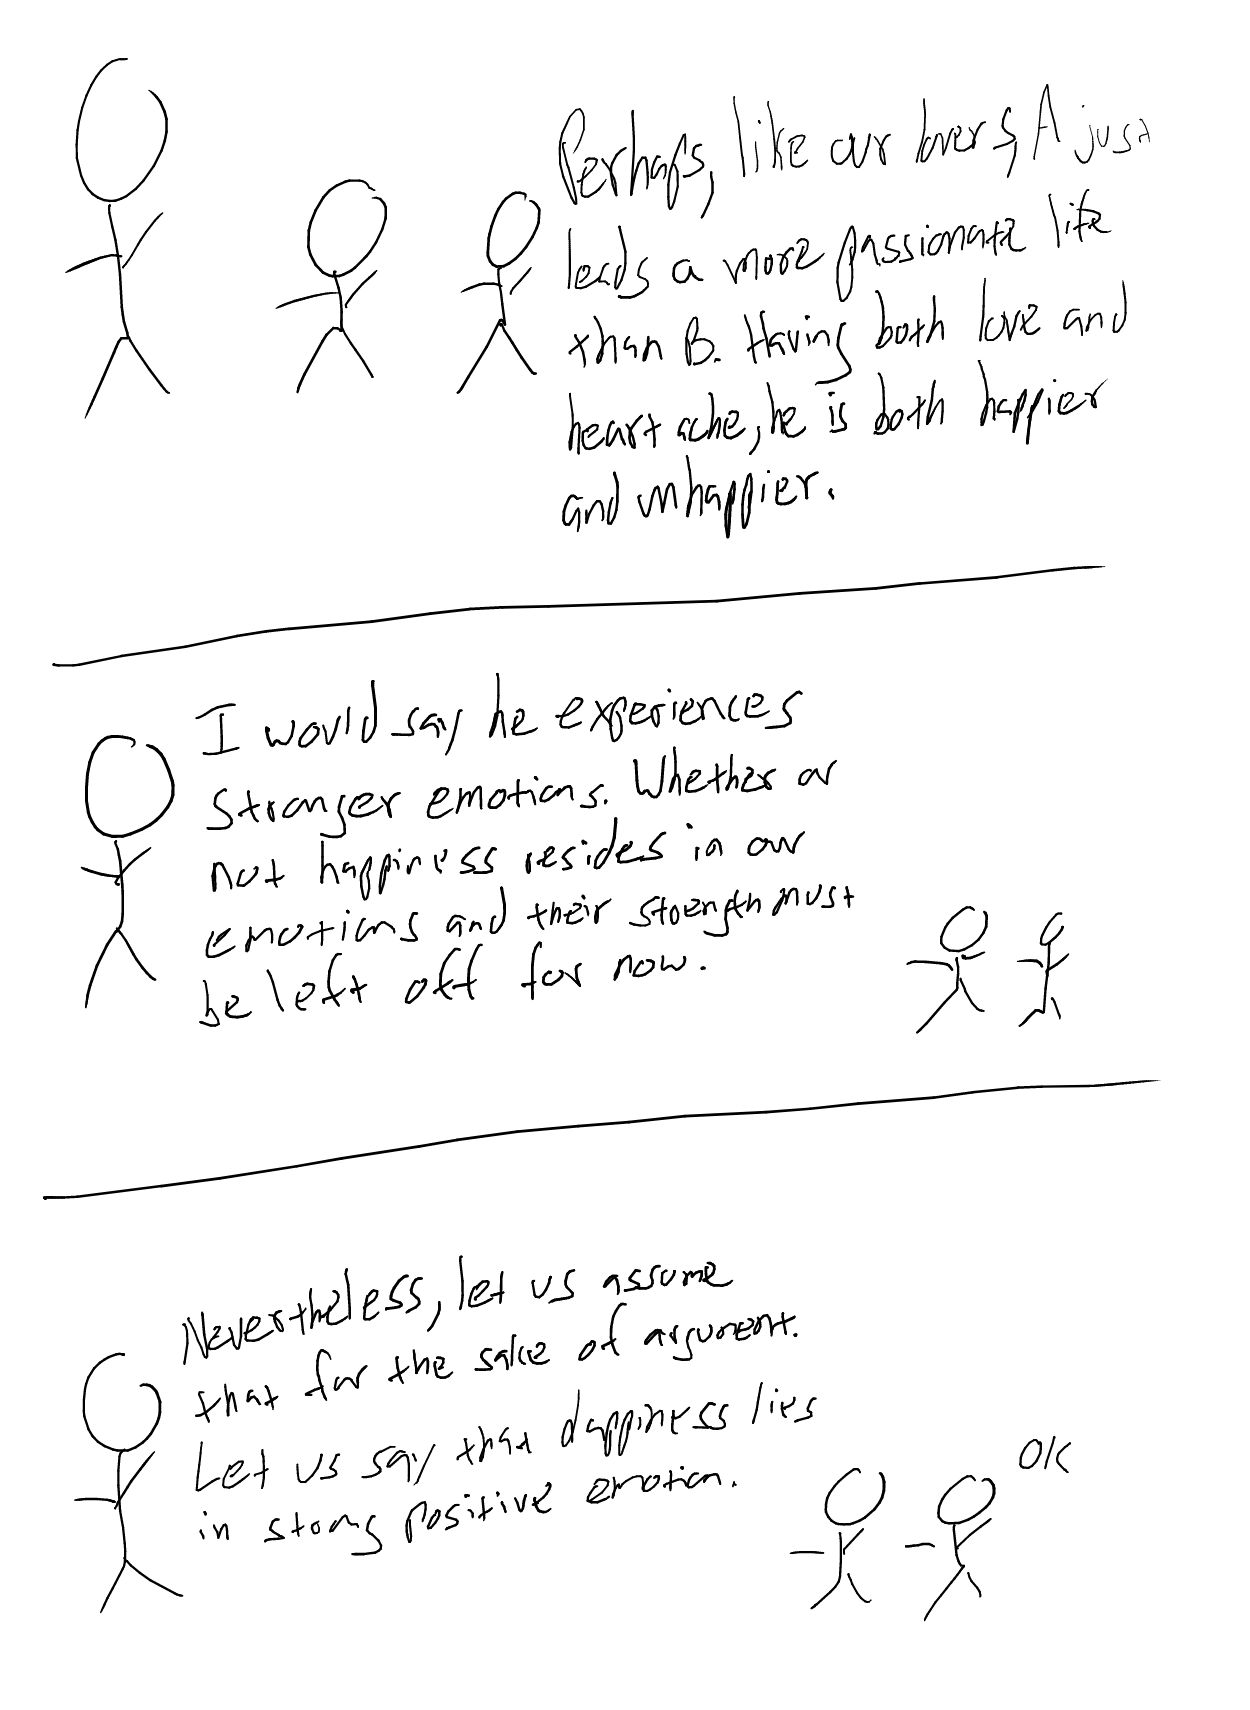 Perhaps, like our lovers, A just
leads a more passionate life
than B. Having both love and
heart ache, he is both happier
and unhappier.
I would say he experiences
stronger emotions. Whether or
not happiness resides in our
emotions and their strength must
be left off for now.
Nevertheless, let us assume
that for the sake of argument.
Let us say that happiness lies
in strong positive emotion.
OK